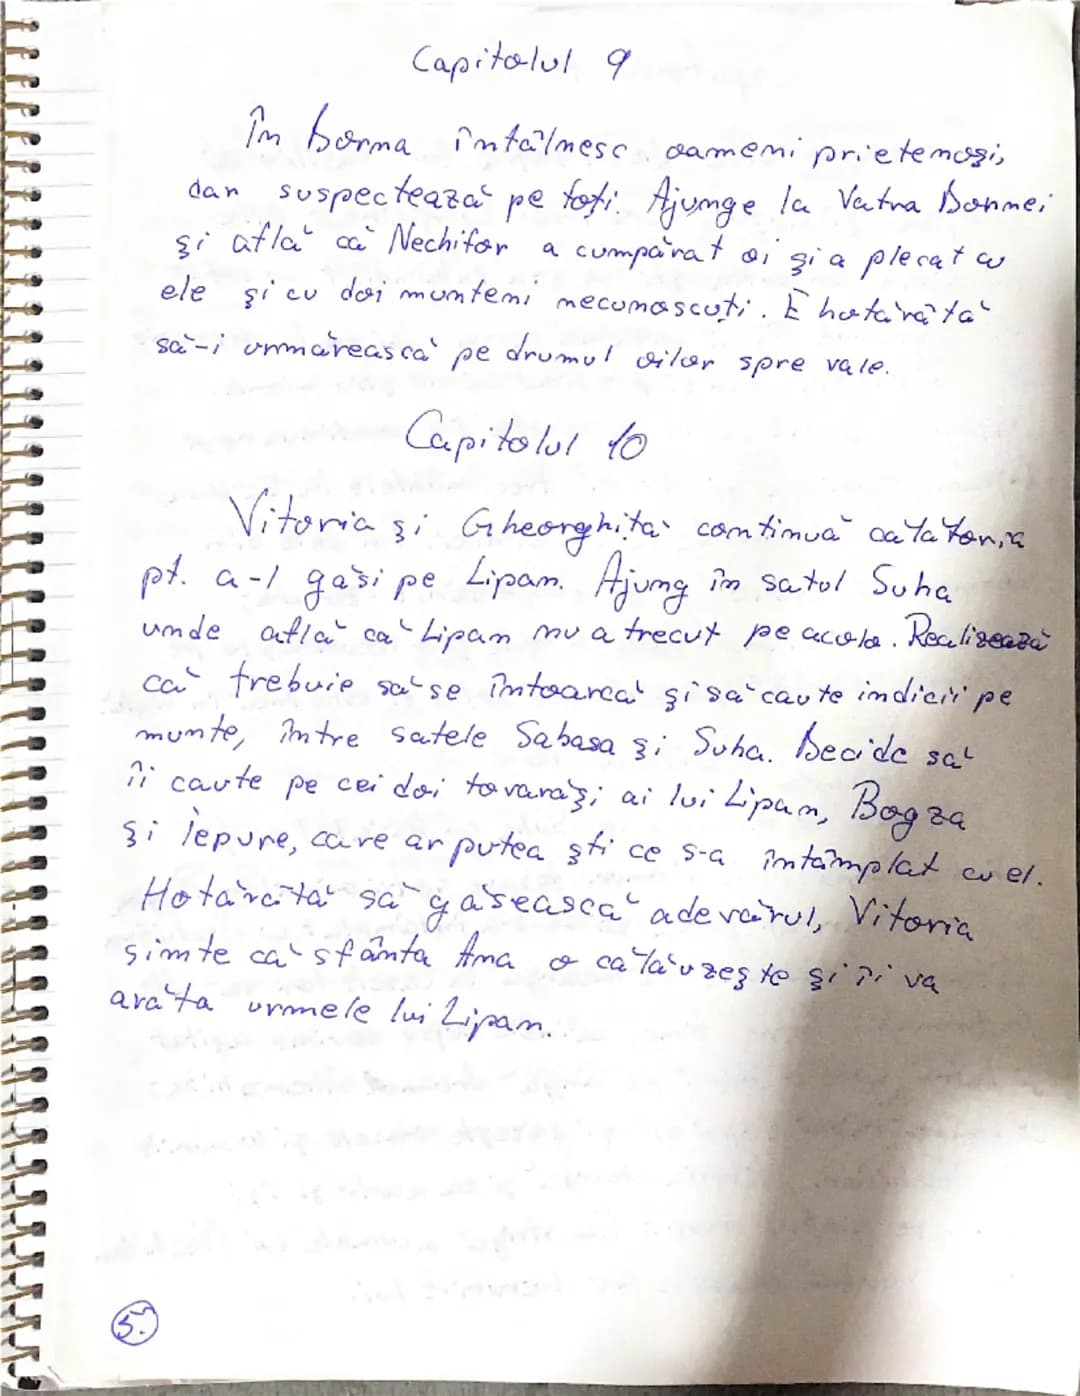 Capitolul 9
În Dorna întâlnesc oameni prietenoși,
dar suspectează pe toți. Ajunge la Vatra Dornei
și află că Nechifor a cumpărat oi și a plecat cu
ele și cu doi munteni necunoscuți. E hotărâtă
să-i urmărească pe drumul oilor spre vale.
Capitolul 10
Vitoria și Gheorghiță continuă călătoria
pt. a-l găsi pe Lipan. Ajung în satul Suha
unde află că Lipan nu a trecut pe acolo. Realizează
că trebuie să se întoarcă și să caute indicii pe
munte, între satele Sabasa și Suha. Decide să
îi caute pe cei doi tovarăși ai lui Lipan, Bogza
și Iepure, care ar putea ști ce s-a întâmplat cu el.
Hotărâtă să găsească adevărul, Vitoria
simte că sfânta Ana o călăuzește și îi va
arăta urmele lui Lipan.
5.